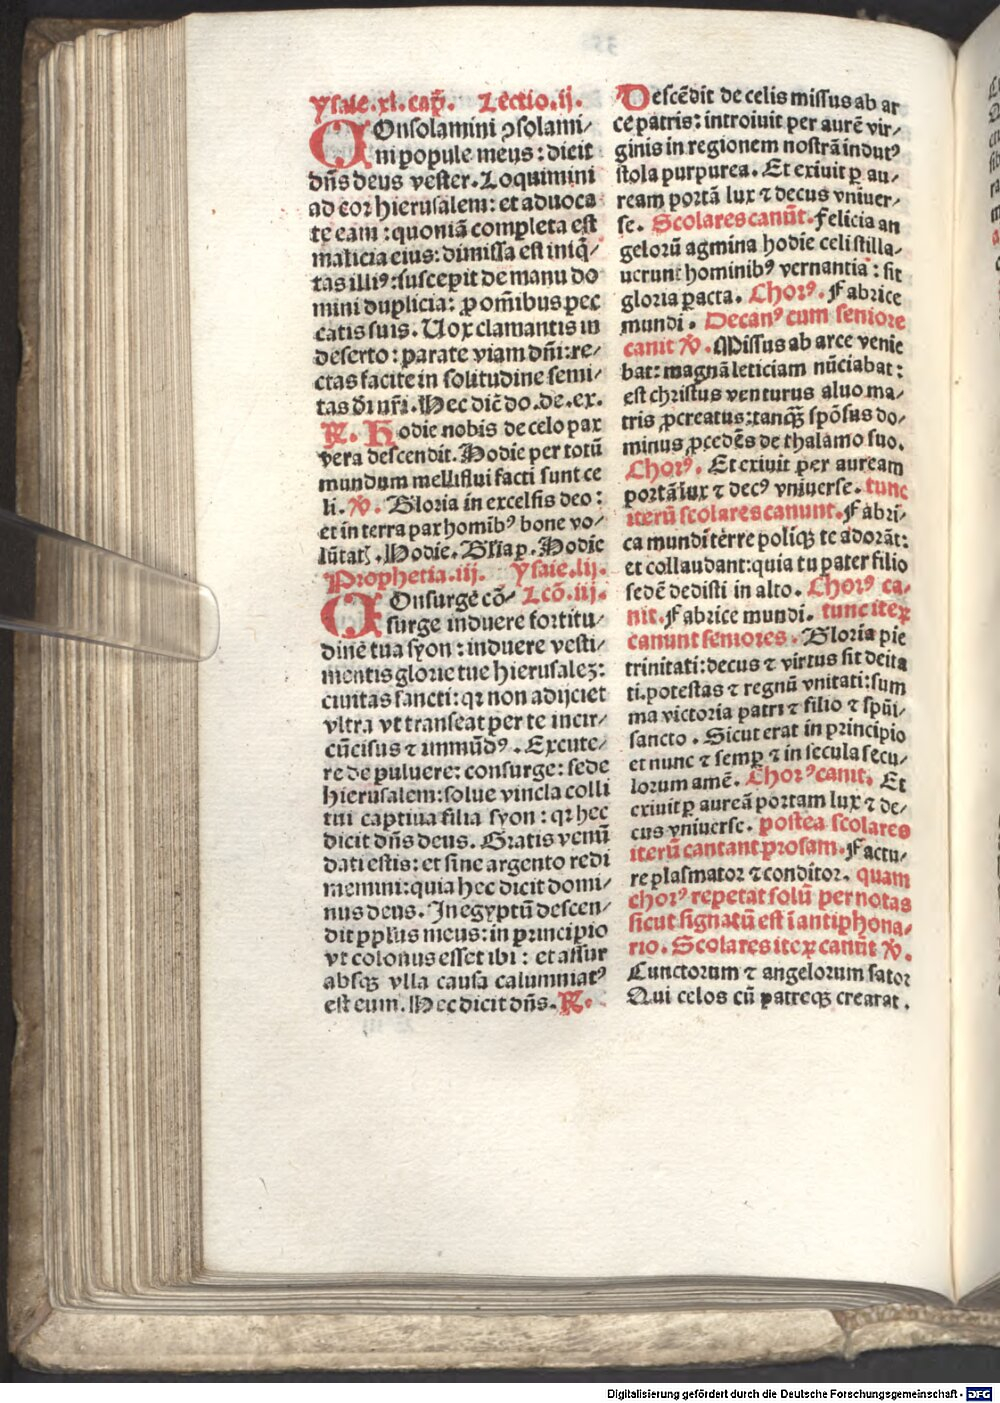 ysaie.xl.cap̄. Lectio.ij.
COnsolamini ꝯsolami/
ni popule meus: dicit
dn̄s deus vester. Loquimini
ad cor hierusalem: et aduoca
te eam: quoniā completa est
malicia eius: dimissa est iniq̄/
tas illiꝰ: suscepit de manu do
mini duplicia: ꝓ om̄ibus pec
catis suis. Uox clamantis in
deserto: parate viam dn̄i: re/
ctas facite in solitudine semi/
tas d̄i nr̄i. Hec dic̄ do. de. ex.
℟. Hodie nobis de celo pax
vera descendit. Hodie per totū
mundum melliflui facti sunt ce
li. ℣. Gloria in excelsis deo:
et in terra pax homībꝰ bone vo/
lūtatꝭ. Hodie. Gl̄ia p. Hodie
Prophetia.iij. ysaie.lij.
COnsurge cō/ Lcō.iij.
surge induere fortitu/
dinē tua syon: induere vesti/
mentis glorie tue hierusaleꝫ:
ciuitas sancti: qꝛ non adijciet
vltra vt transeat per te incir/
cūcisus ⁊ immūdꝰ. Excute/
re de puluere: consurge: sede
hierusalem: solue vincla colli
tui captiua filia syon: qꝛ hec
dicit dn̄s deus. Gratis venū
dati estis: et sine argento redi
memini: quia hec dicit domi/
nus deus. In egyptū descen/
dit pplus meus: in principio
vt colonus esset ibi: et assur
absqꝫ vlla causa calumniatꝰ
est eum. Hec dicit dn̄s. ℟.
Descēdit de celis missus ab ar
ce patris: introiuit per aurē vir/
ginis in regionem nostrā indutꝰ
stola purpurea. Et exiuit ꝑ au/
ream portā lux ⁊ decus vniuer/
se. Scolares canūt. Felicia an
gelorū agmina hodie celi stilla/
uerunt hominibꝰ vernantia: sit
gloria ꝑacta. Chorꝰ. Fabrice
mundi. Decanꝰ cum seniore
canit ℣. Missus ab arce venie
bat: magnā leticiam nūciabat:
est christus venturus aluo ma/
tris ꝓcreatus: tanqꝫ spōsus do/
minus ꝓcedēs de thalamo suo.
Chorꝰ. Et exiuit per auream
portā lux ⁊ decꝰ vniuerse. tunc
iterū scolares canunt. Fabri/
ca mundi terre poliqꝫ te adorāt:
et collaudant: quia tu pater filio
sedē dedisti in alto. Chorꝰ ca/
nit. Fabrice mundi. tunc iteꝝ
canunt seniores. Gloria pie
trinitati: decus ⁊ virtus sit deita
ti. potestas ⁊ regnū vnitati: sum
ma victoria patri ⁊ filio ⁊ spūi/
sancto. Sicut erat in principio
et nunc ⁊ semꝑ ⁊ in secula secu/
lorum amē. Chorꝰ canit. Et
exiuit ꝑ aureā portam lux ⁊ de/
cus vniuerse. postea scolares
iterū cantant prosam. Factu/
re plasmator ⁊ conditor. quam
chorꝰ repetat solū per notas
sicut signatū est ī antiphona/
rio. Scolares iteꝝ canūt ℣.
Cunctorum ⁊ angelorum sator
Qui celos cū patreqꝫ crearat.
Digitalisierung gefördert durch die Deutsche Forschungsgemeinschaft - DFG